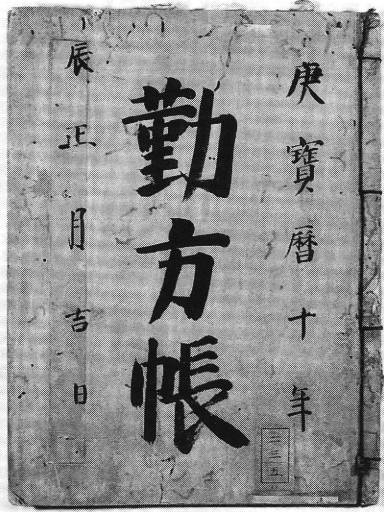 庚寶暦十年
勤方帳
辰正月吉日
三三五